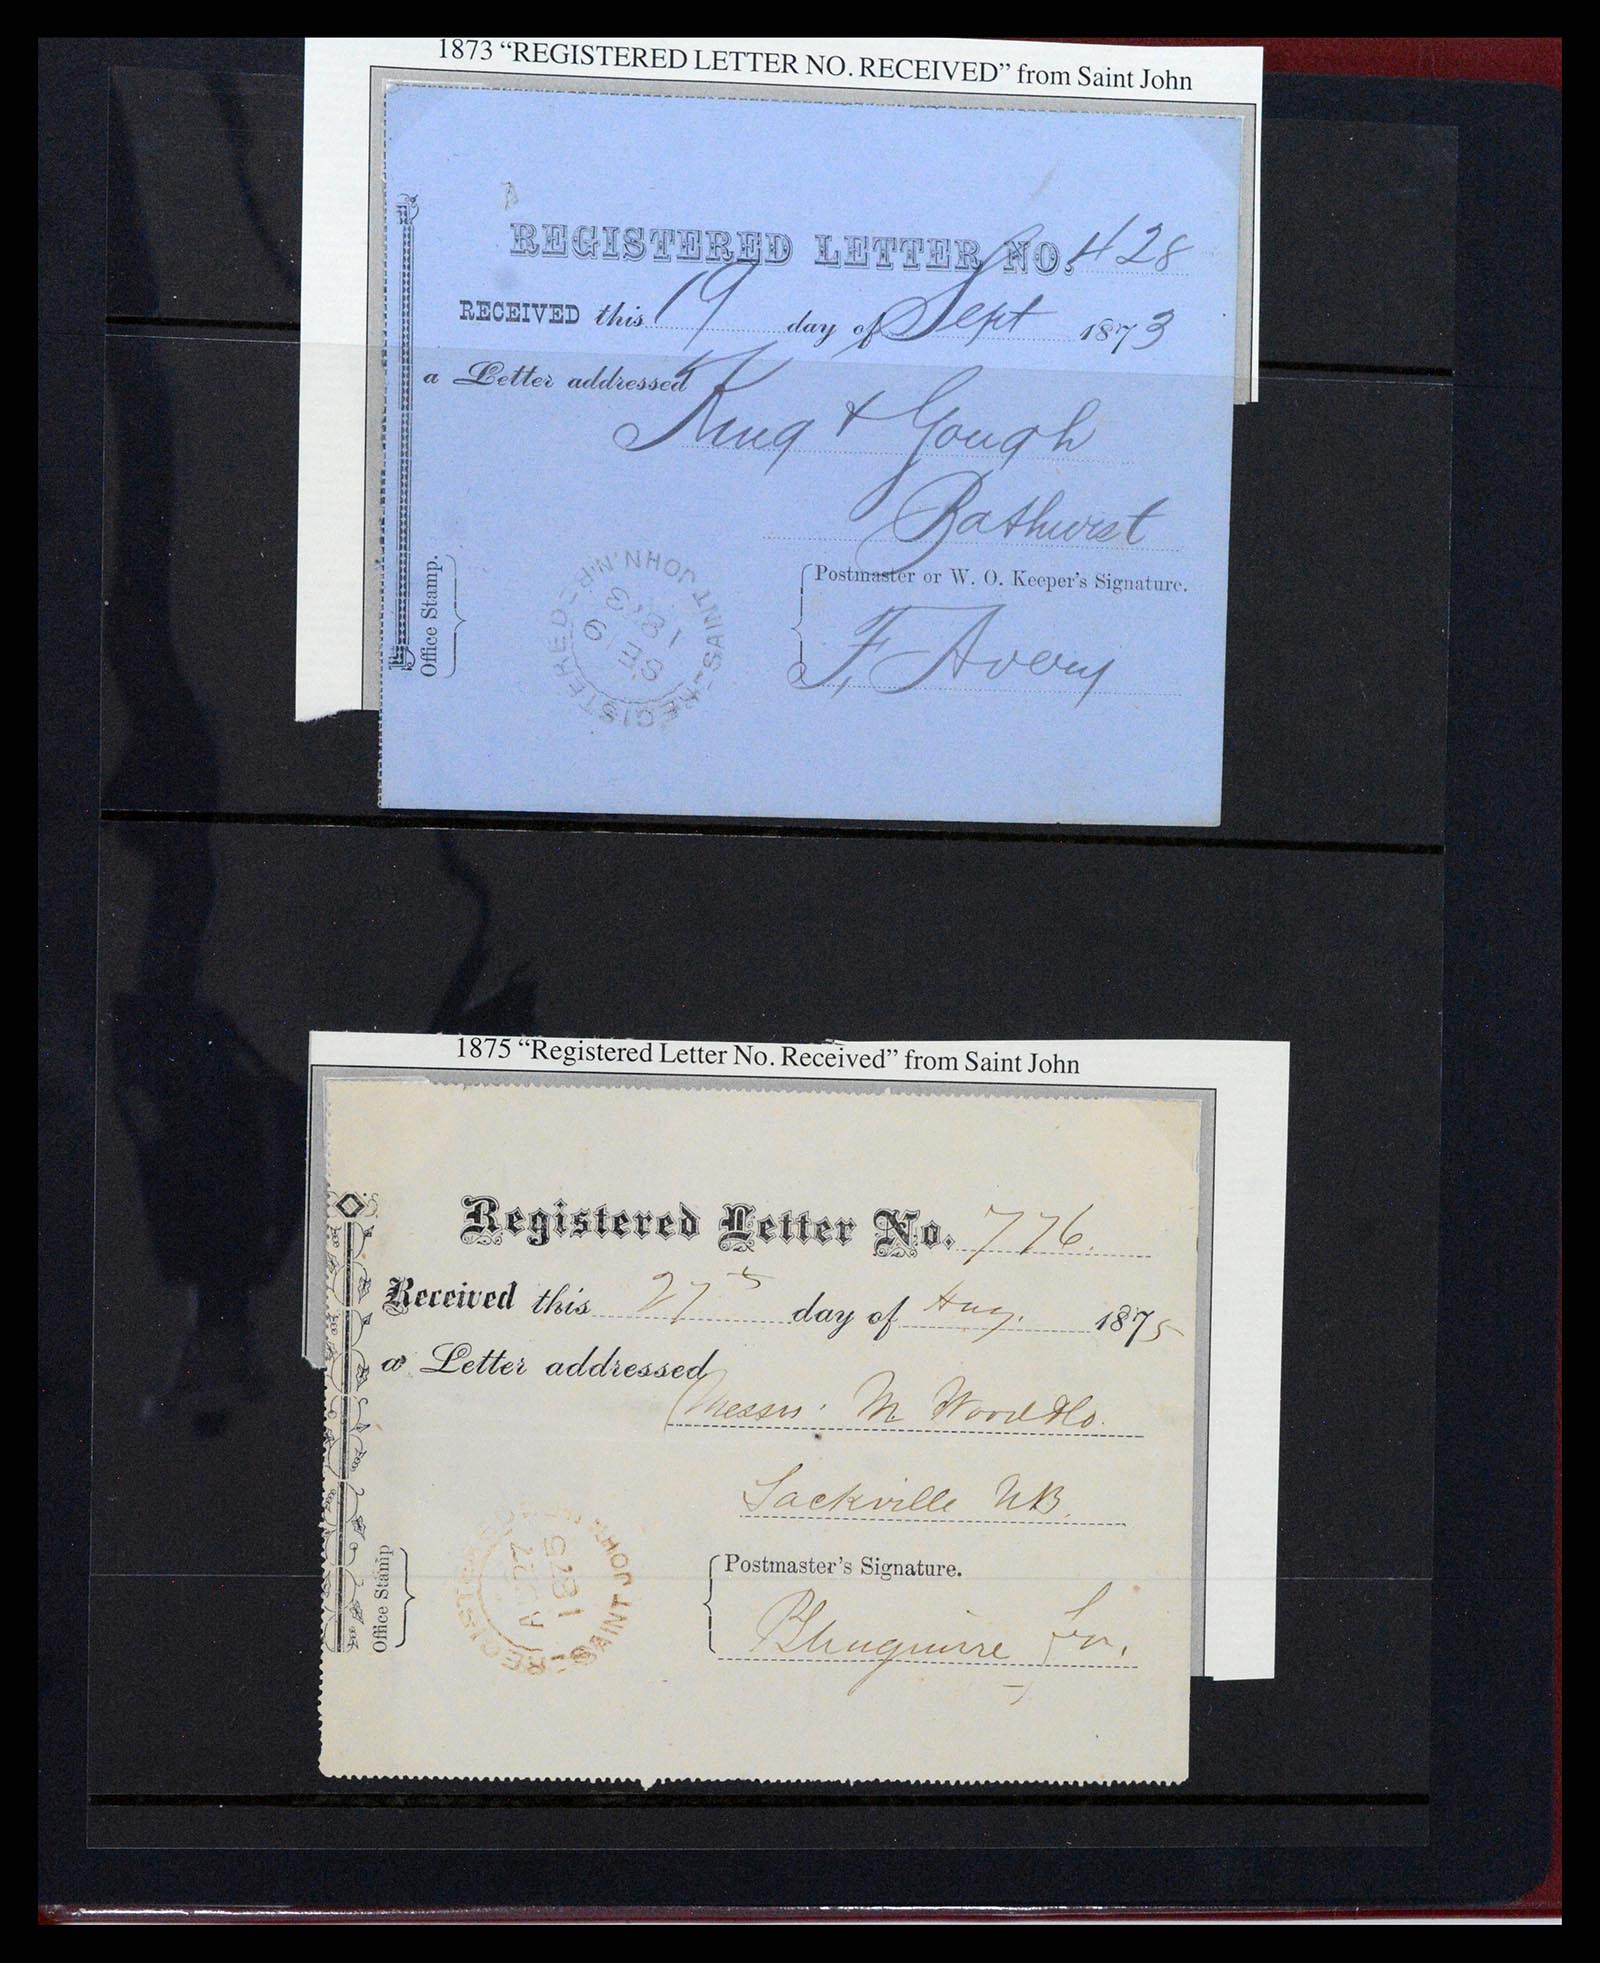 1873 “REGISTERED LETTER NO. RECEIVED” from Saint John
REGISTERED LETTER NO. 428
RECEIVED this 19 day of Sept 1873
a Letter addressed
King & Gough
Bathurst
Office Stamp.
REGISTERED - SAINT JOHN. N.B.
SE 19
1873
Postmaster or W. O. Keeper's Signature.
F. Avery
1875 “Registered Letter No. Received” from Saint John
Registered Letter No. 776.
Received this 27th day of Aug. 1875
a Letter addressed
Messrs. M Wood & Co.
Sackville N.B.
Office Stamp
REGISTERED SAINT JOHN
AU 27
1875
Postmaster's Signature.